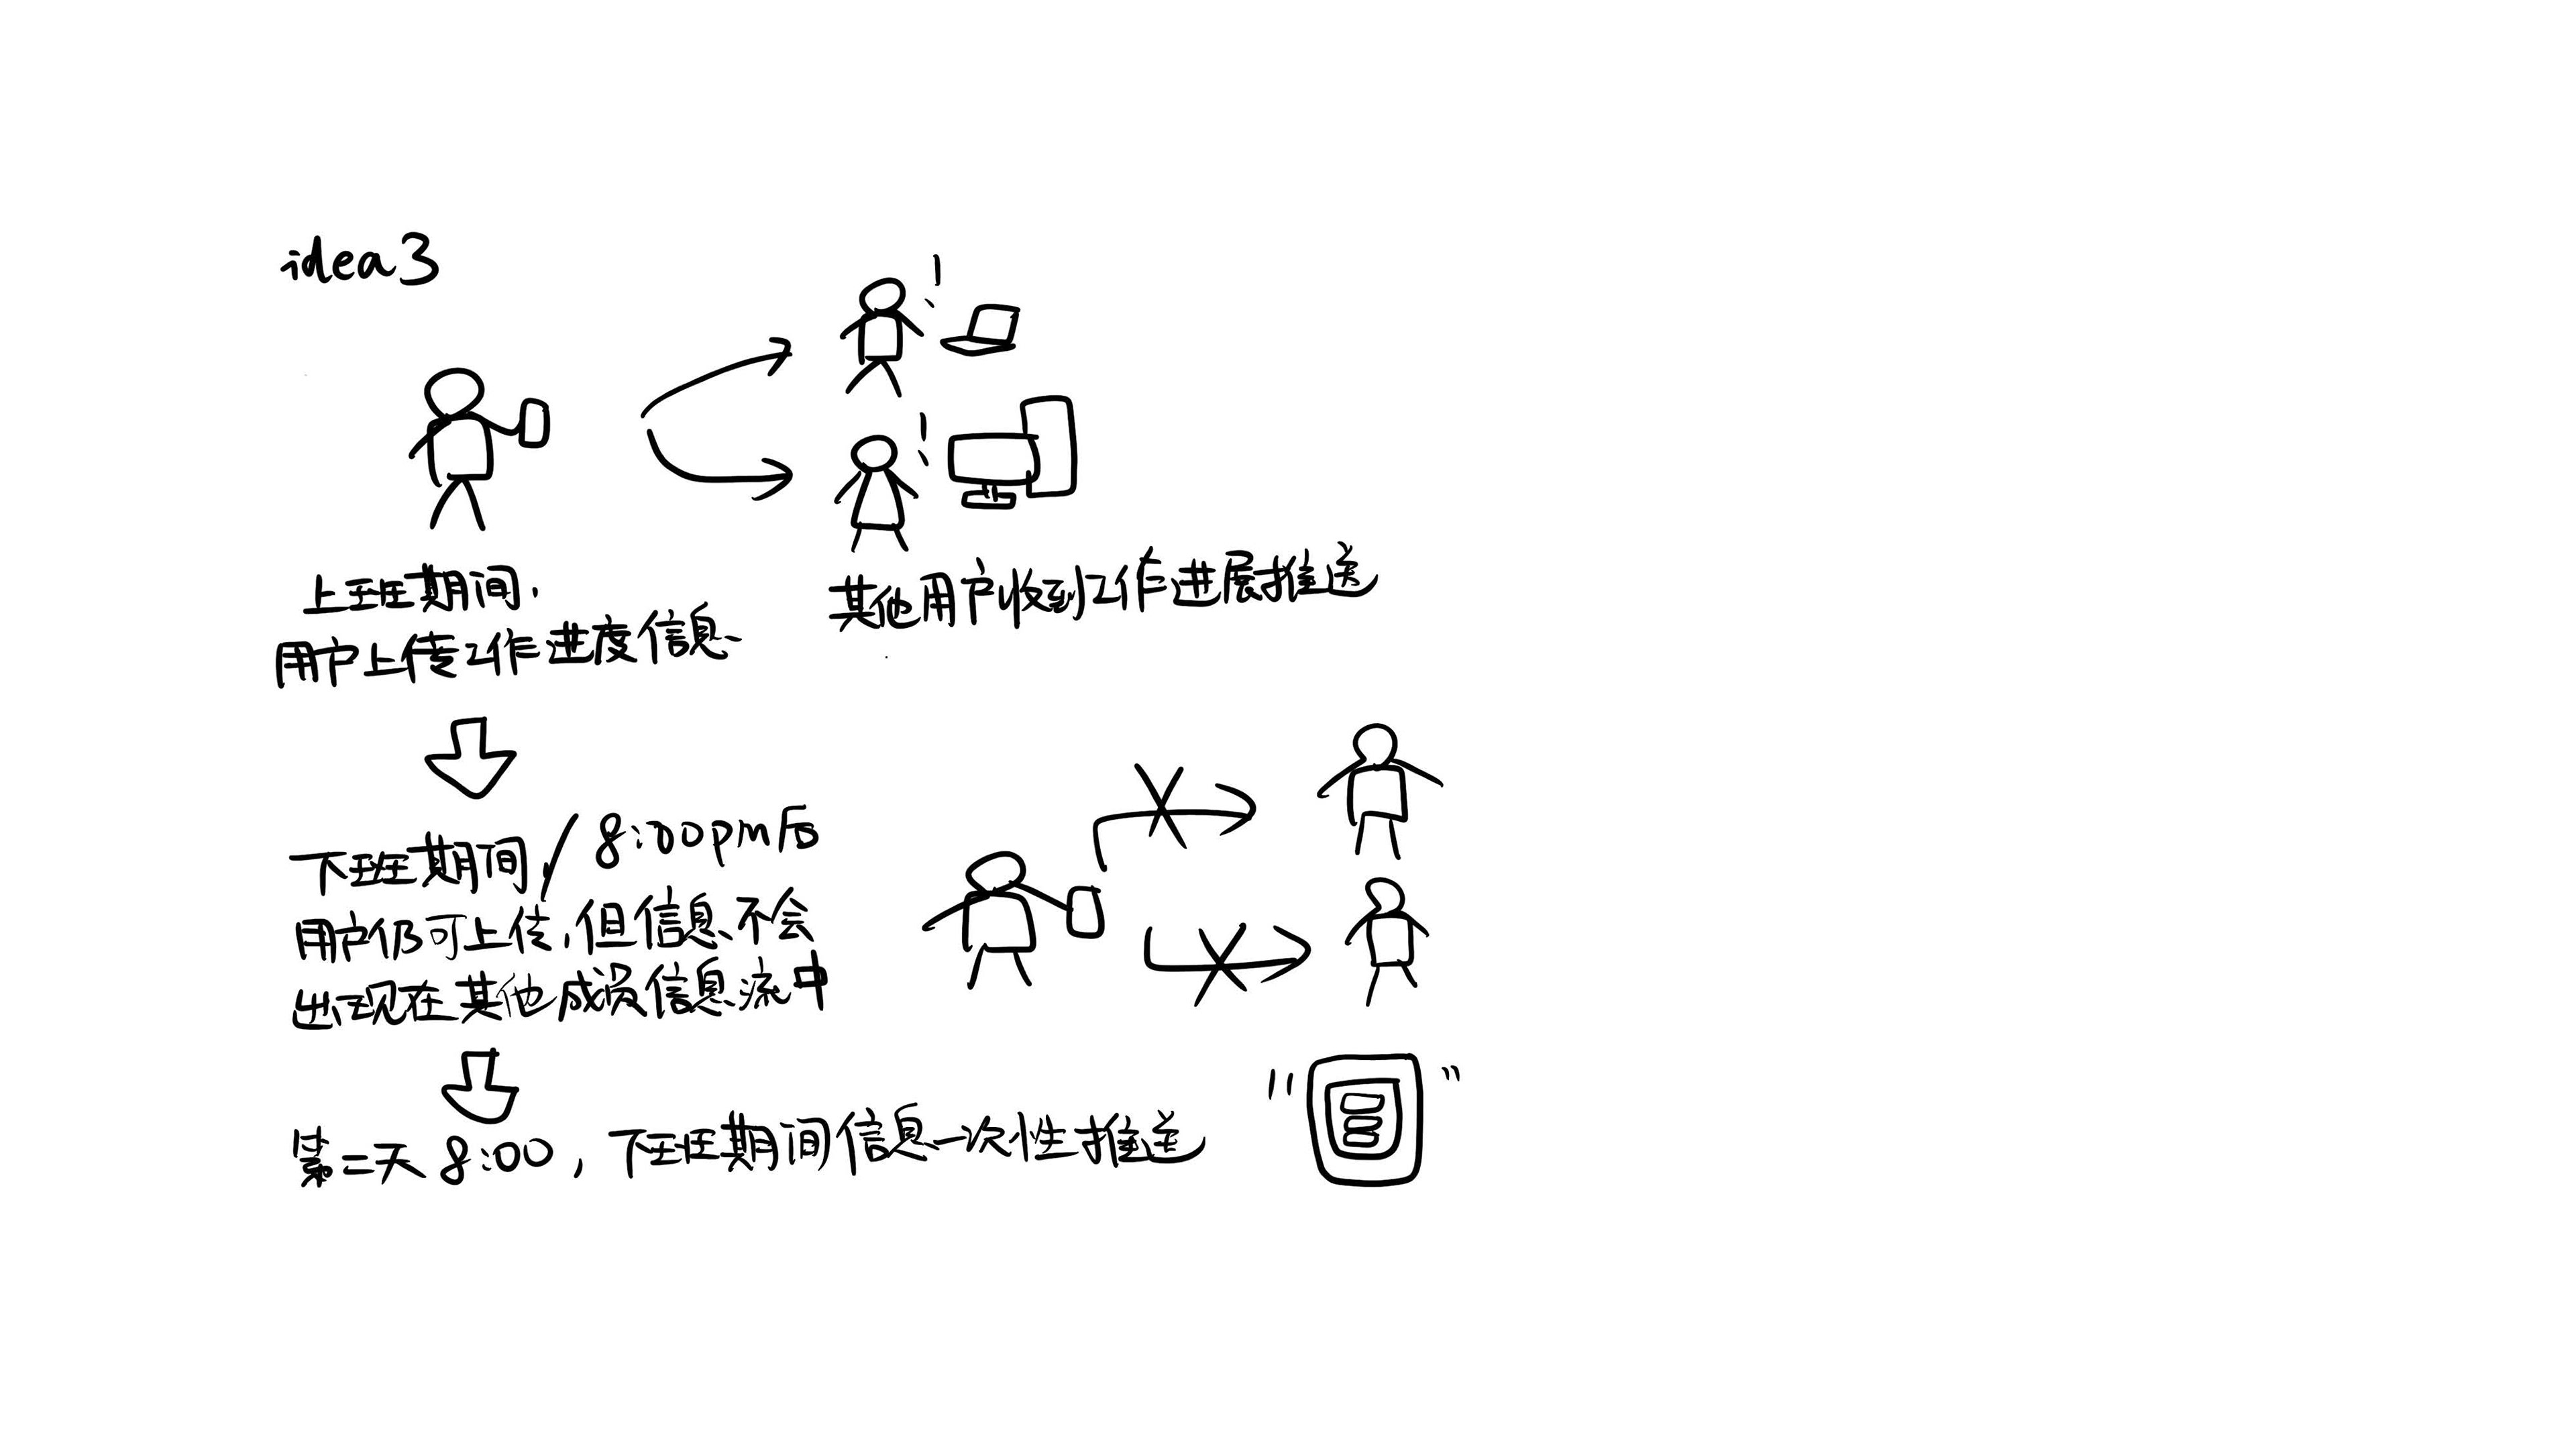 idea3
上班期间,
用户上传工作进度信息
其他用户收到工作进展推送
下班期间/8:00pm后
用户仍可上传,但信息不会
出现在其他成员信息流中
第二天8:00,下班期间信息一次性推送